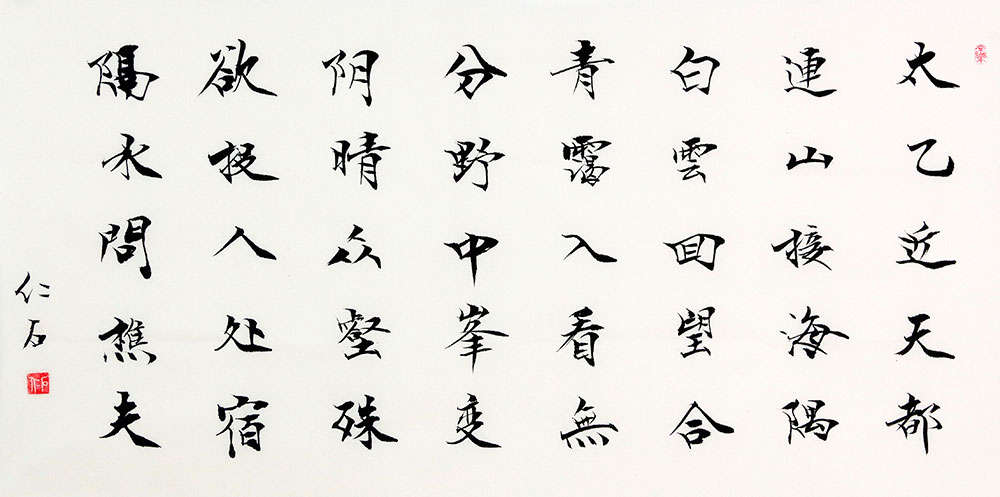 太乙近天都
連山接海隅
白雲回望合
青靄入看無
分野中峯变
阴晴众壑殊
欲投人处宿
隔水問樵夫
仁石